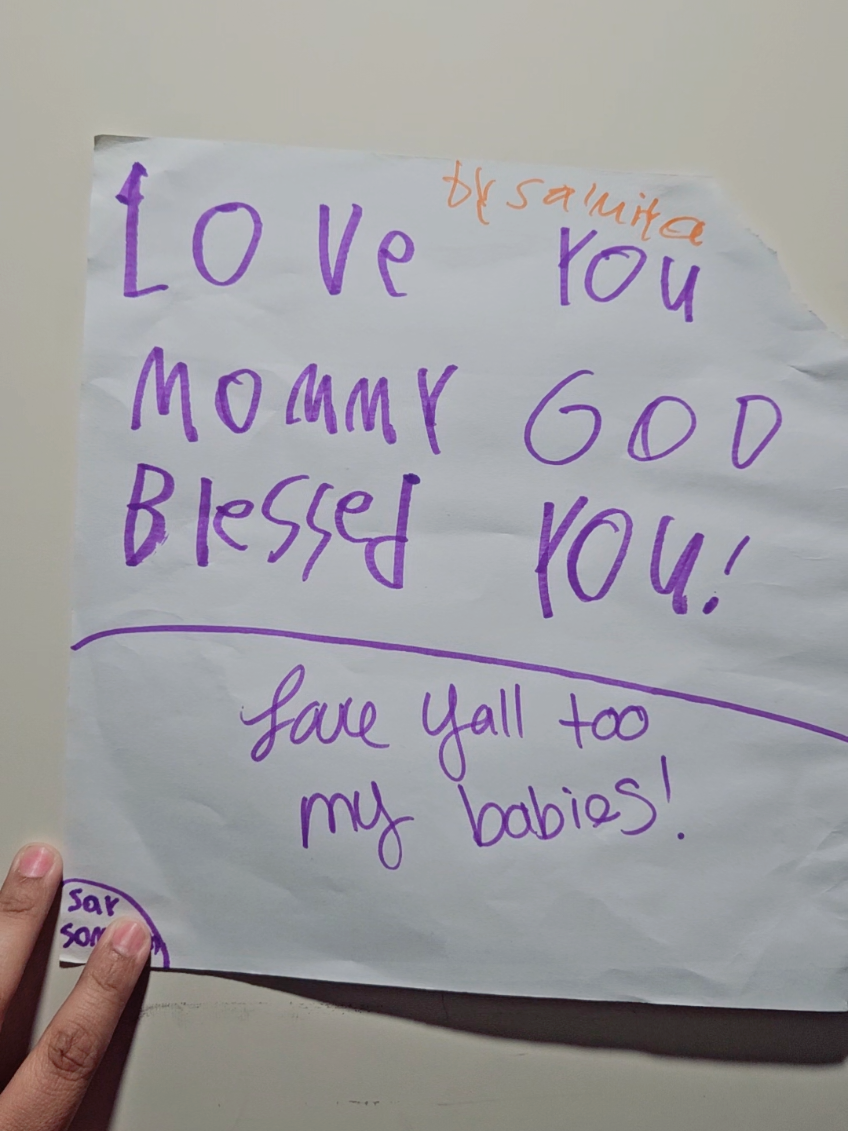 by Salmita
Love You
Mommy GOD
Blessed YOU!
Love Yall too
my babies!
Say